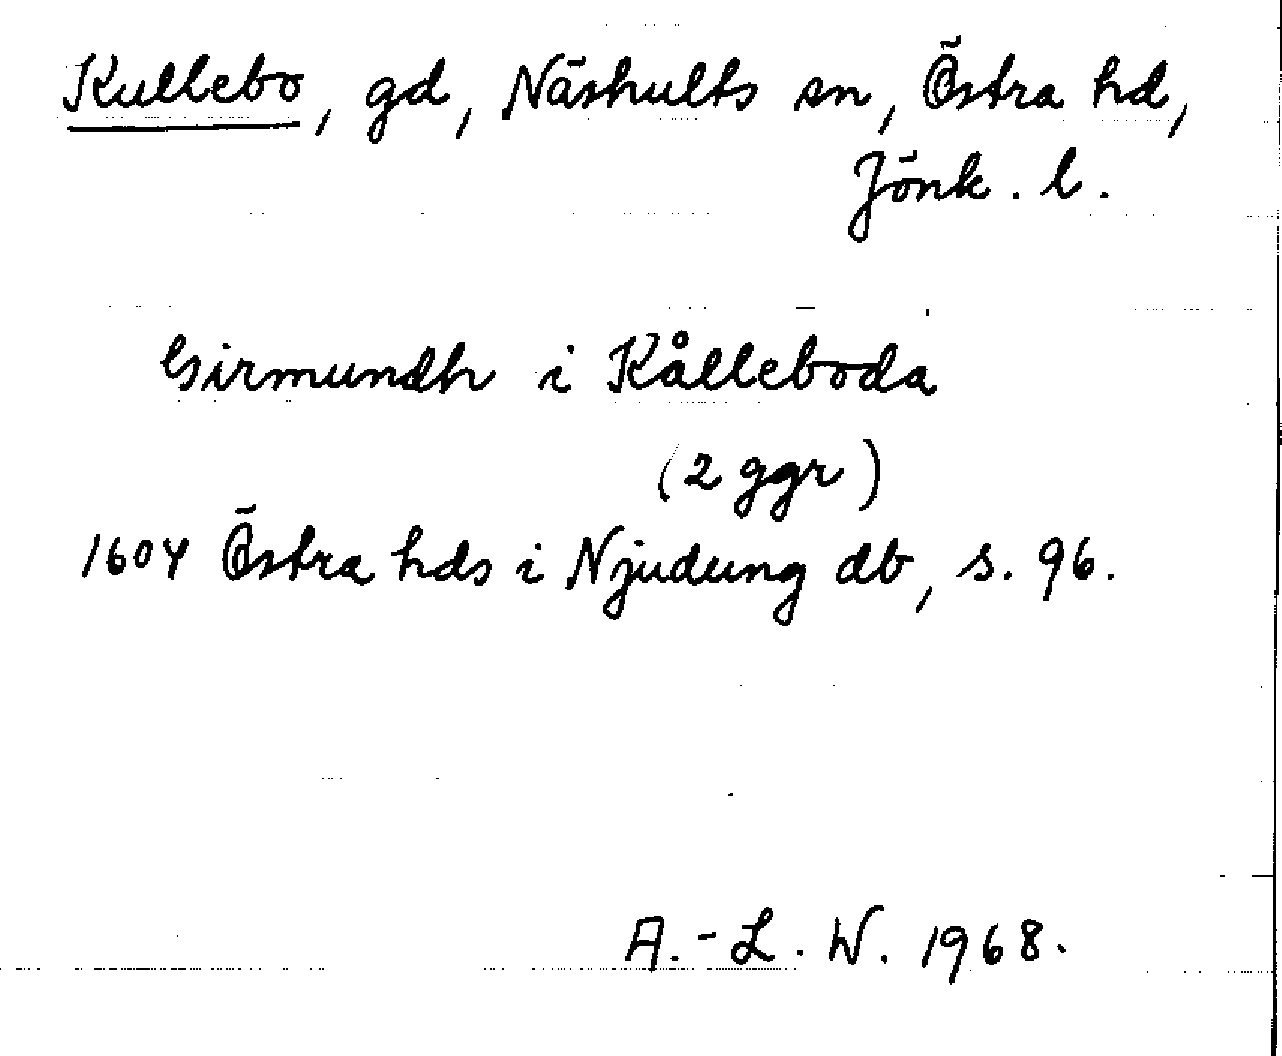 Kullebo, gd, Näshults sn, Östra hd,
Jönk. l.
Girmundh i Kålleboda
(2 ggr)
1604 Östra hds i Njudung db, s. 96.
A.-L. W. 1968.